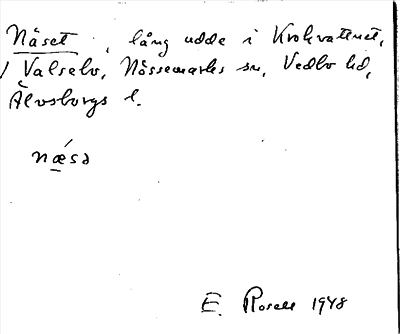 Näset, lång udde i Krokvattnet,
/ Valselv, Nössemarks sn, Vedbo hd,
Älvsborgs l.
næsə
E. Rosell 1948